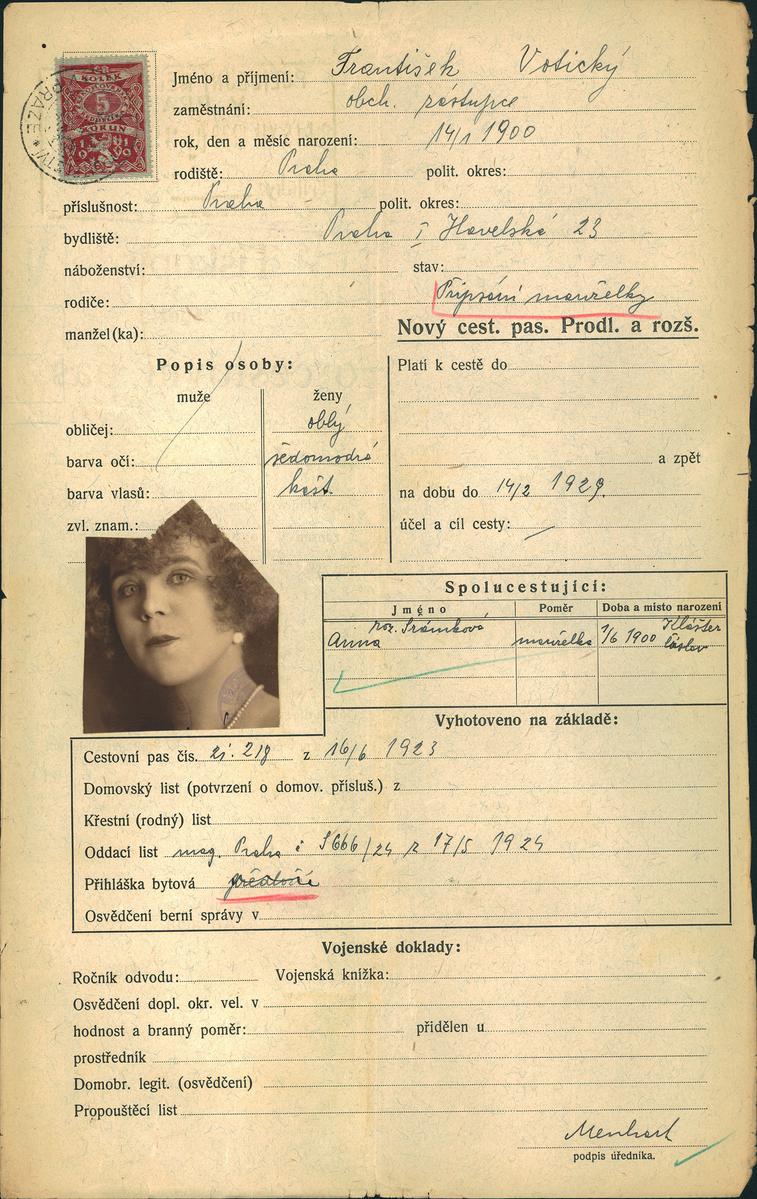 KOLEK
5
KORUN
1919
PRAZE
Jméno a příjmení: František Votický
zaměstnání: obch. zástupce
rok, den a měsíc narození: 14/1 1900
rodiště: Praha polit. okres:
příslušnost: Praha polit. okres:
bydliště: Praha I Havelská 23
náboženství: stav:
rodiče: Připsání manželky
manžel(ka): Nový cest. pas. Prodl. a rozš.
Popis osoby: Platí k cestě do
muže ženy
obličej: oblý
barva očí: šedomodré a zpět
barva vlasů: kašt. na dobu do 14/2 1929.
zvl. znam.: účel a cíl cesty: —
Spolucestující:
Jméno Poměr Doba a místo narození
Anna roz. Šrámková manželka 1/6 1900 Klášter Čáslav
Vyhotoveno na základě:
Cestovní pas čís. 218 z 16/6 1923
Domovský list (potvrzení o domov. přísluš.) z
Křestní (rodný) list
Oddací list mag. Praha č 5666/24 z 17/5 1924
Přihláška bytová předloží
Osvědčení berní správy v
Vojenské doklady:
Ročník odvodu: Vojenská knížka:
Osvědčení dopl. okr. vel. v
hodnost a branný poměr: přidělen u
prostředník
Domobr. legit. (osvědčení)
Propouštěcí list
Menhart
podpis úředníka.